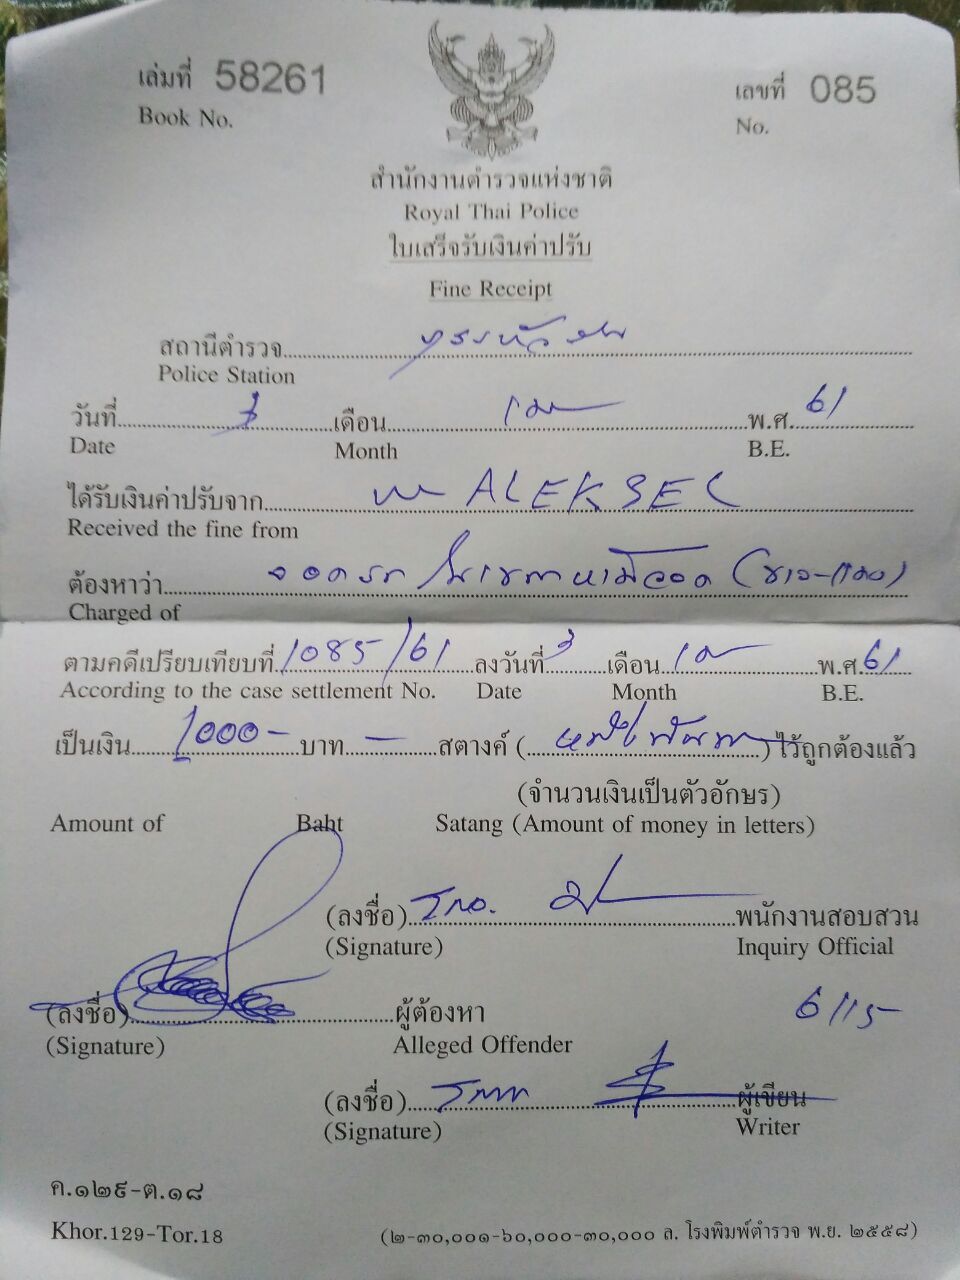 เล่มที่ 58261 เลขที่ 085
Book No. No.
สำนักงานตำรวจแห่งชาติ
Royal Thai Police
ใบเสร็จรับเงินค่าปรับ
Fine Receipt
สถานีตำรวจ
Police Station
วันที่ 3 เดือน เมย พ.ศ. 61
Date Month B.E.
ได้รับเงินค่าปรับจาก ALEKSEL
Received the fine from
ต้องหาว่า จอดรถในเขตห้ามจอด (ขาว-แดง)
Charged of
ตามคดีเปรียบเทียบที่ 1085/61 ลงวันที่ 3 เดือน เมย พ.ศ. 61
According to the case settlement No. Date Month B.E.
เป็นเงิน 1000- บาท - สตางค์ (หนึ่งพันบาท) ไว้ถูกต้องแล้ว
(จำนวนเงินเป็นตัวอักษร)
Amount of Baht Satang (Amount of money in letters)
(ลงชื่อ) พนักงานสอบสวน
(Signature) Inquiry Official
(ลงชื่อ) ผู้ต้องหา 6/15
(Signature) Alleged Offender
(ลงชื่อ) ผู้เขียน
(Signature) Writer
ค.๑๒๙-ต.๑๘
Khor.129-Tor.18 (๒-๓๐,๐๐๑-๖๐,๐๐๐-๓๐,๐๐๐ ล. โรงพิมพ์ตำรวจ พ.ย. ๒๕๕๘)